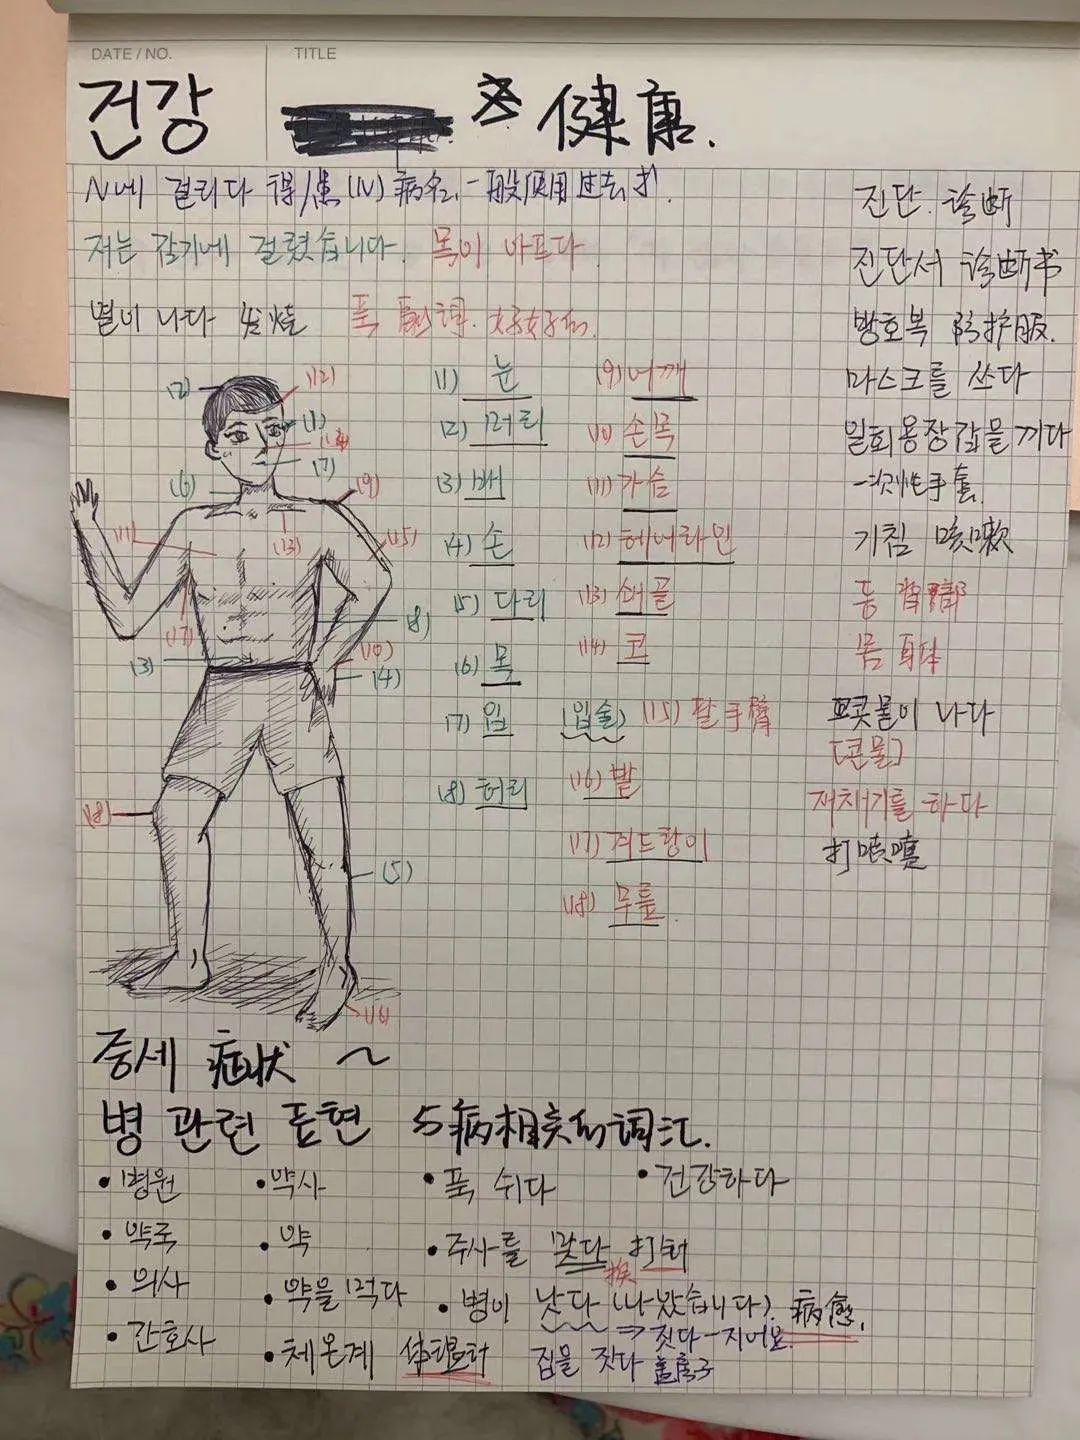 DATE / NO.
TITLE
건강 健康.
N에 걸리다 得/患(N)病名, 一般使用过去时.
저는 감기에 걸렸습니다. 목이 아프다.
열이 나다 发烧 푹 副词. 好好的.
진단. 诊断
진단서 诊断书
방호복 防护服.
마스크를 쓰다
일회용장갑을 끼다
一次性手套.
기침 咳嗽
등 背部
몸 身体
콧물이 나다
[콘물]
재채기를 하다
打喷嚏
(2)
(12)
(1)
(14)
(7)
(6)
(9)
(11)
(13)
(15)
(17)
(8)
(3)
(10)
(4)
(18)
(5)
(16)
(1) 눈
(2) 머리
(3) 배
(4) 손
(5) 다리
(6) 목
(7) 입 (입술)
(8) 허리
(9) 어깨
(10) 손목
(11) 가슴
(12) 헤어라인
(13) 쇄골
(14) 코
(15) 팔 手臂
(16) 발
(17) 겨드랑이
(18) 무릎.
증세 症状 ~
병 관련 표현 与病相关的词汇.
• 병원
• 약국
• 의사
• 간호사
• 약사
• 약
• 약을 먹다
• 체온계 体温计
• 푹 쉬다
• 건강하다
• 주사를 맞다 打针
挨
• 병이 낫다 (나았습니다). 病愈.
⇒ 짓다 - 지어요.
집을 짓다 盖房子